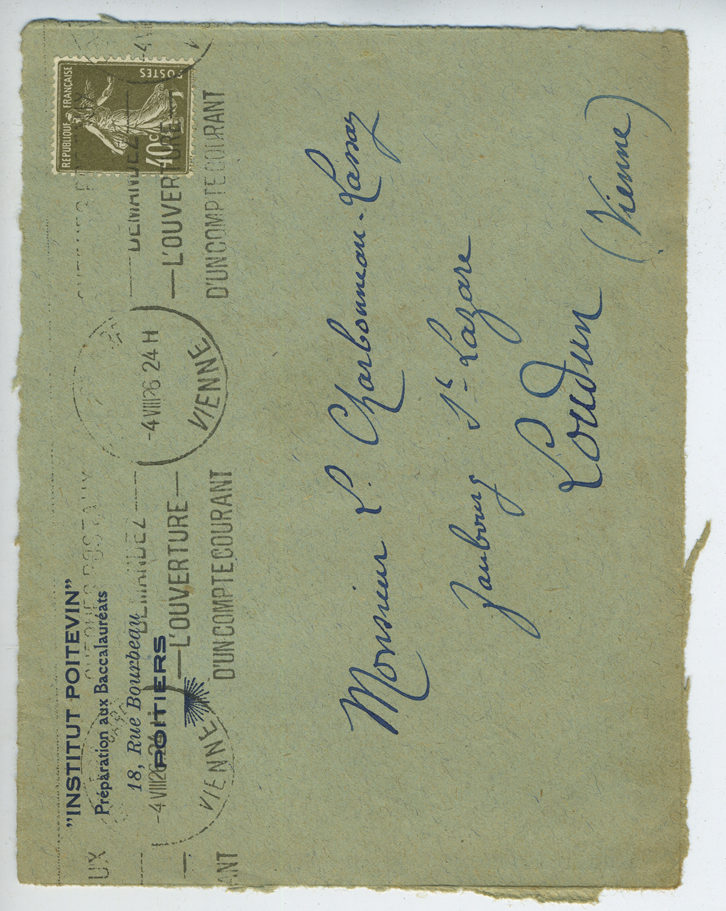 "INSTITUT POITEVIN"
Préparation aux Baccalauréats
18, Rue Bourbeau
POITIERS
REPUBLIQUE FRANÇAISE
POSTES
40c
CHEQUES POSTAUX
DEMANDEZ
L'OUVERTURE
D'UN COMPTE COURANT
-4 VIII 26 24 H
VIENNE
DEMANDEZ
L'OUVERTURE
D'UN COMPTE COURANT
-4 VIII 26 24 H
VIENNE
UX
ANT
Monsieur L. Charbonneau-Lassay
Faubourg St-Lazare
Loudun
(Vienne)